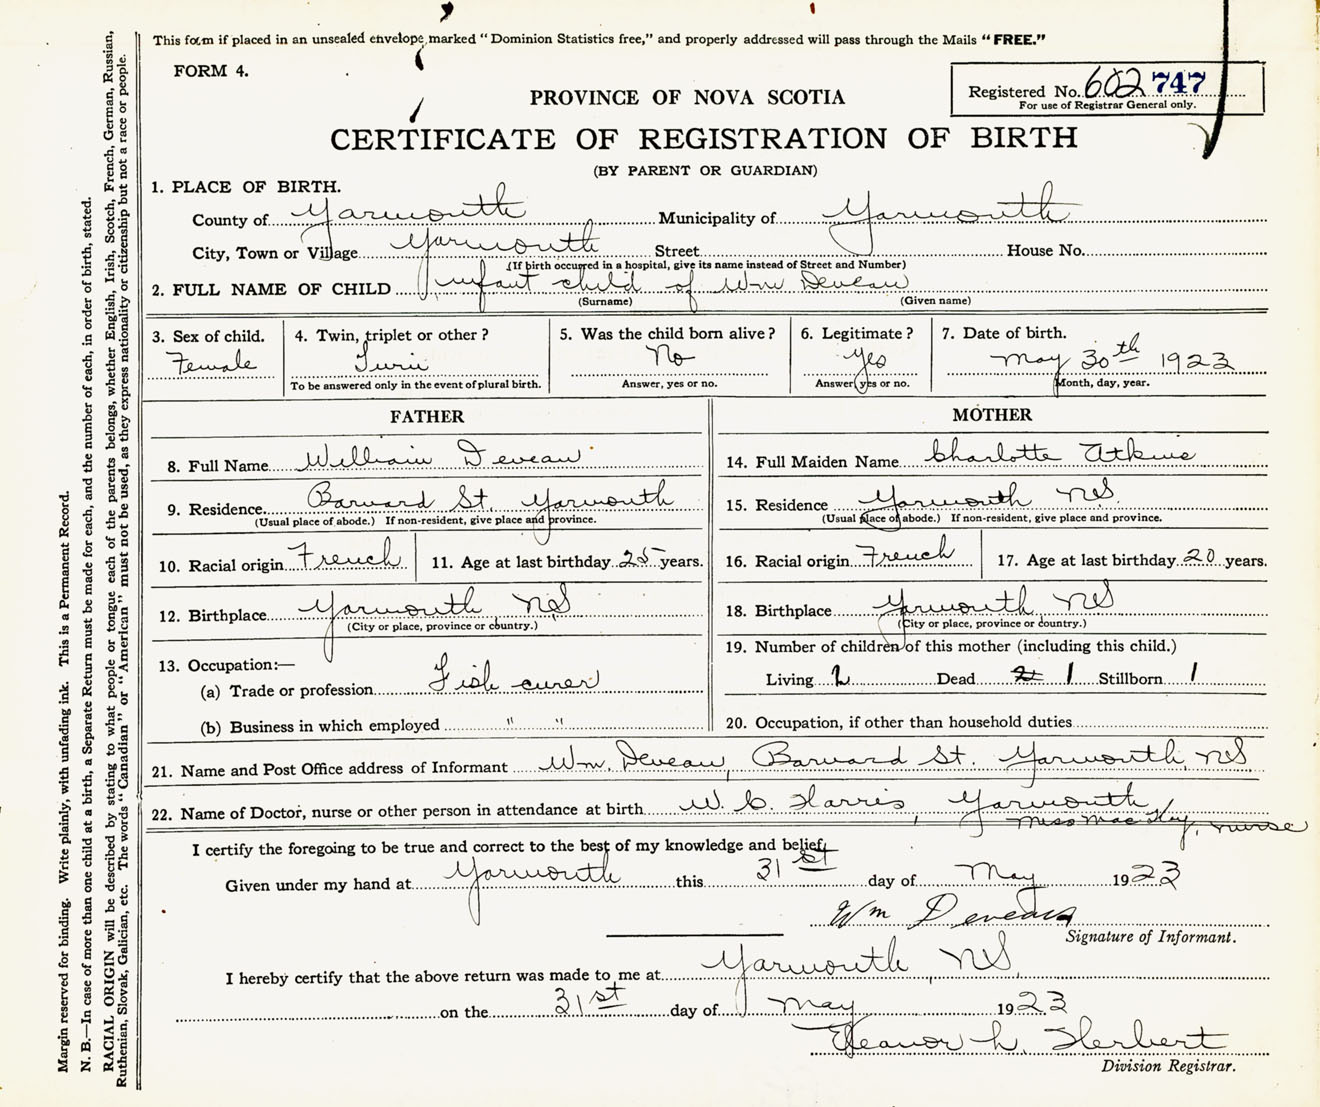 This form if placed in an unsealed envelope, marked "Dominion Statistics free," and properly addressed will pass through the Mails "FREE."
FORM 4.
Registered No. 602 747
For use of Registrar General only.
PROVINCE OF NOVA SCOTIA
CERTIFICATE OF REGISTRATION OF BIRTH
(BY PARENT OR GUARDIAN)
1. PLACE OF BIRTH.
County of Yarmouth Municipality of Yarmouth
City, Town or Village Yarmouth Street House No.
(If birth occurred in a hospital, give its name instead of Street and Number)
2. FULL NAME OF CHILD infant child of Wm Deveau
(Surname) (Given name)
3. Sex of child. 4. Twin, triplet or other? 5. Was the child born alive? 6. Legitimate? 7. Date of birth.
Female Twin No Yes May 30th 1923
To be answered only in the event of plural birth. Answer, yes or no. Answer yes or no. Month, day, year.
FATHER
8. Full Name William Deveau
9. Residence Barnard St. Yarmouth
(Usual place of abode.) If non-resident, give place and province.
10. Racial origin French 11. Age at last birthday 25 years.
12. Birthplace Yarmouth NS
(City or place, province or country.)
13. Occupation:—
(a) Trade or profession Fish curer
(b) Business in which employed " "
MOTHER
14. Full Maiden Name Charlotte Atkins
15. Residence Yarmouth NS
(Usual place of abode.) If non-resident, give place and province.
16. Racial origin French 17. Age at last birthday 20 years.
18. Birthplace Yarmouth NS
(City or place, province or country.)
19. Number of children of this mother (including this child.)
Living 2 Dead 1 Stillborn 1
20. Occupation, if other than household duties
21. Name and Post Office address of Informant Wm. Deveau, Barnard St. Yarmouth, NS
22. Name of Doctor, nurse or other person in attendance at birth W. C. Harris, Yarmouth
Miss MacKay, nurse
I certify the foregoing to be true and correct to the best of my knowledge and belief,
Given under my hand at Yarmouth this 31st day of May 1923
Wm Deveau
Signature of Informant.
I hereby certify that the above return was made to me at Yarmouth, NS,
on the 31st day of May 1923
Eleanor L. Herbert
Division Registrar.
Margin reserved for binding. Write plainly, with unfading ink. This is a Permanent Record.
N. B.—In case of more than one child at a birth, a Separate Return must be made for each, and the number of each, in order of birth, stated.
RACIAL ORIGIN will be described by stating to what people or tongue each of the parents belongs, whether English, Irish, Scotch, French, German, Russian,
Ruthenian, Slovak, Galician, etc. The words "Canadian" or "American" must not be used, as they express nationality or citizenship but not a race or people.